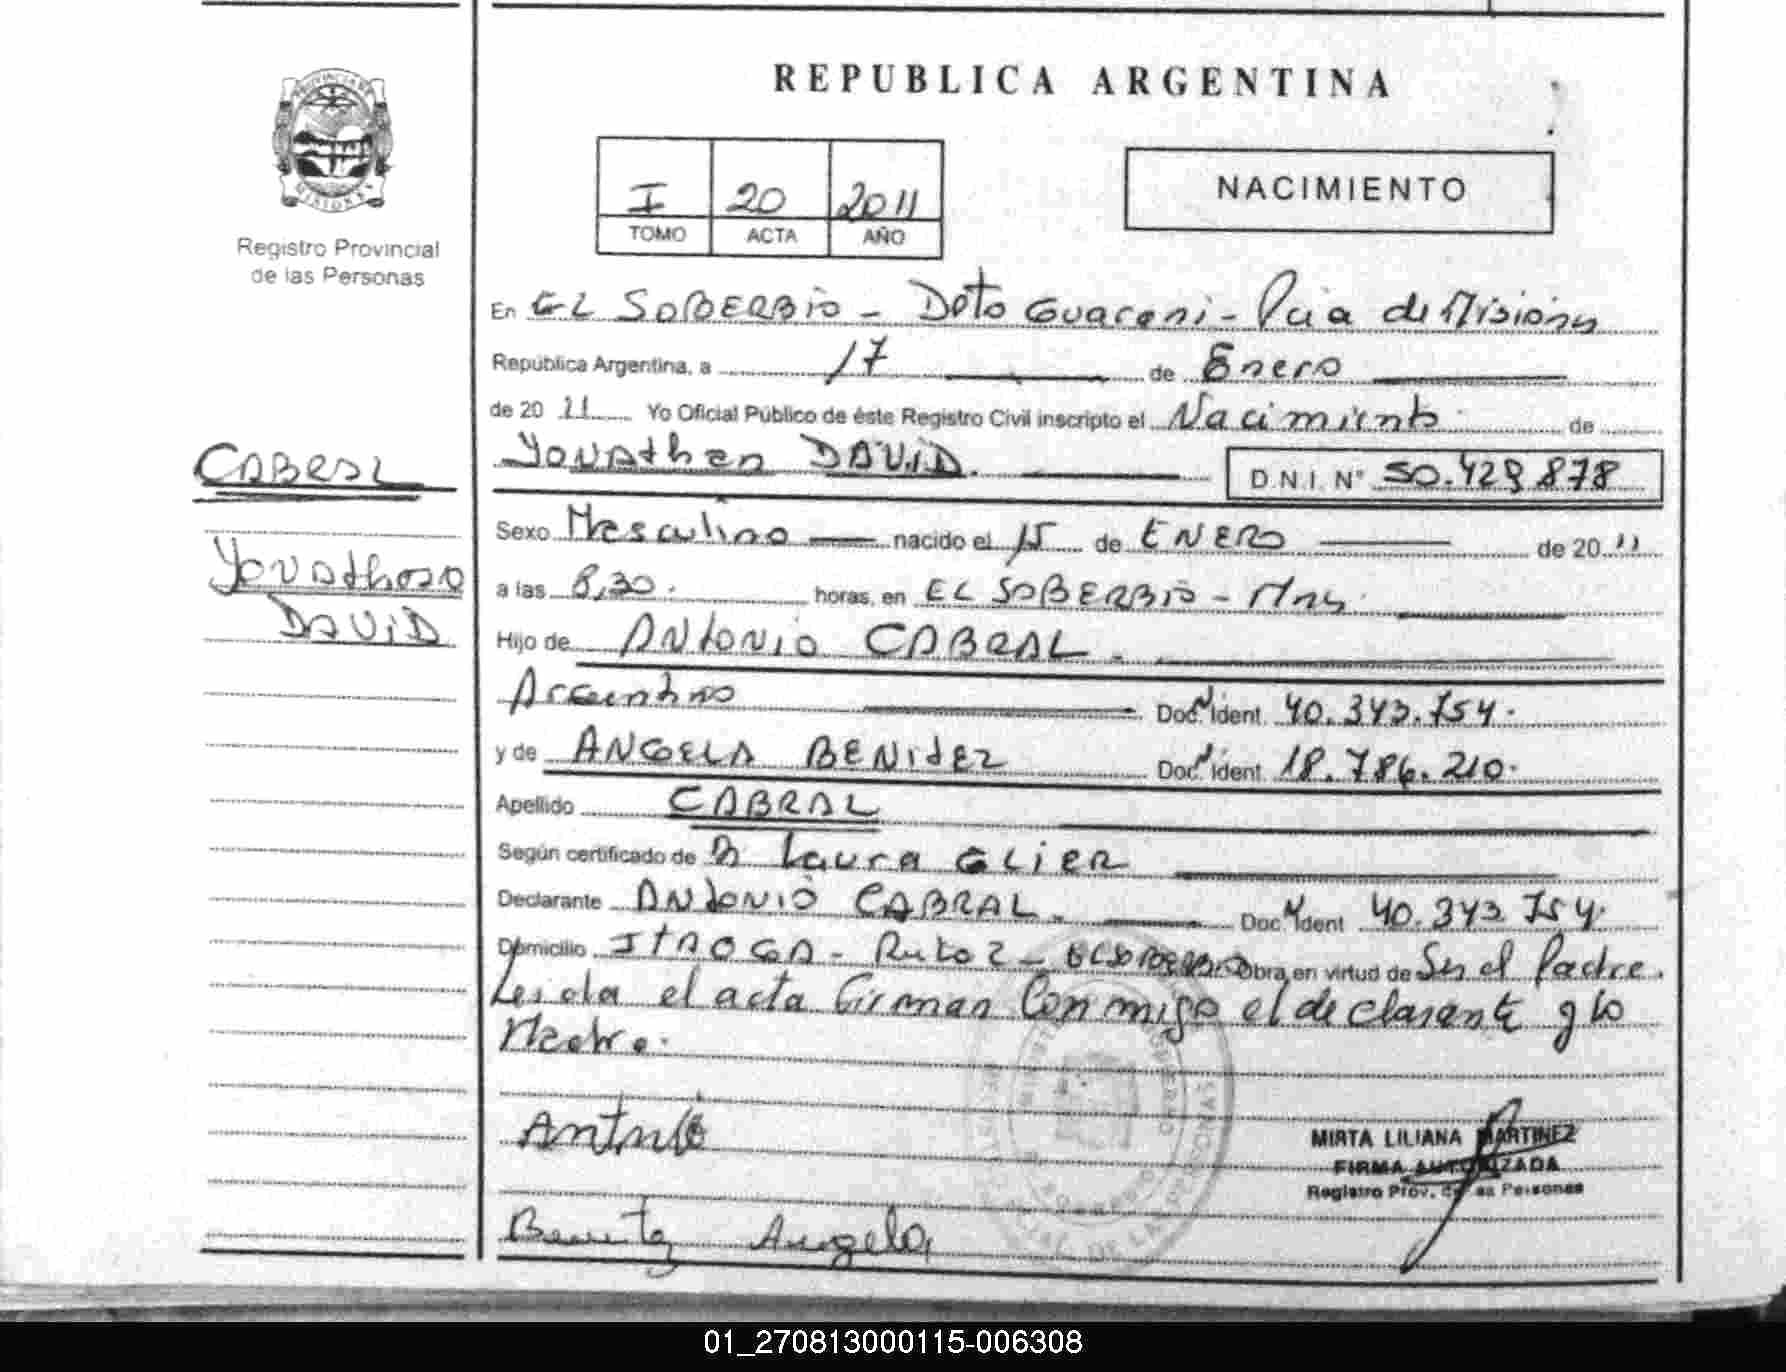 REPUBLICA ARGENTINA
PROVINCIA DE
MISIONES
Registro Provincial
de las Personas
I 20 2011
TOMO ACTA AÑO
NACIMIENTO
En EL SOBERBIO - Dpto Guarani - Pcia de Misiones
República Argentina, a 17 de Enero
de 20 11 Yo Oficial Público de éste Registro Civil inscripto el Nacimiento de
YONAthan DAViD. D.N.I. N° 50.429.878
CABRAL
YONAthan
DAViD
Sexo Masculino nacido el 15 de ENERO de 20 11
a las 8,30. horas, en EL SOBERBIO - Mns.
Hijo de ANtONiO CABRAL.
Argentino Doc. Ident. 40.343.754.
y de ANGELA BENitEZ Doc. Ident. 18.786.210.
Apellido CABRAL
Según certificado de Laura GLIER
Declarante ANtONiO CABRAL. Doc. Ident 40.343.754.
Domicilio ITAROGA - Ruta 2 - EL SOBERBIO Obra en virtud de Ser el Padre.
Leida el acta firman Conmigo el declarante y la
Madre.
Antonio
MIRTA LILIANA MARTINEZ
FIRMA AUTORIZADA
Registro Prov. de las Personas
Benitez Angela
01_270813000115-006308